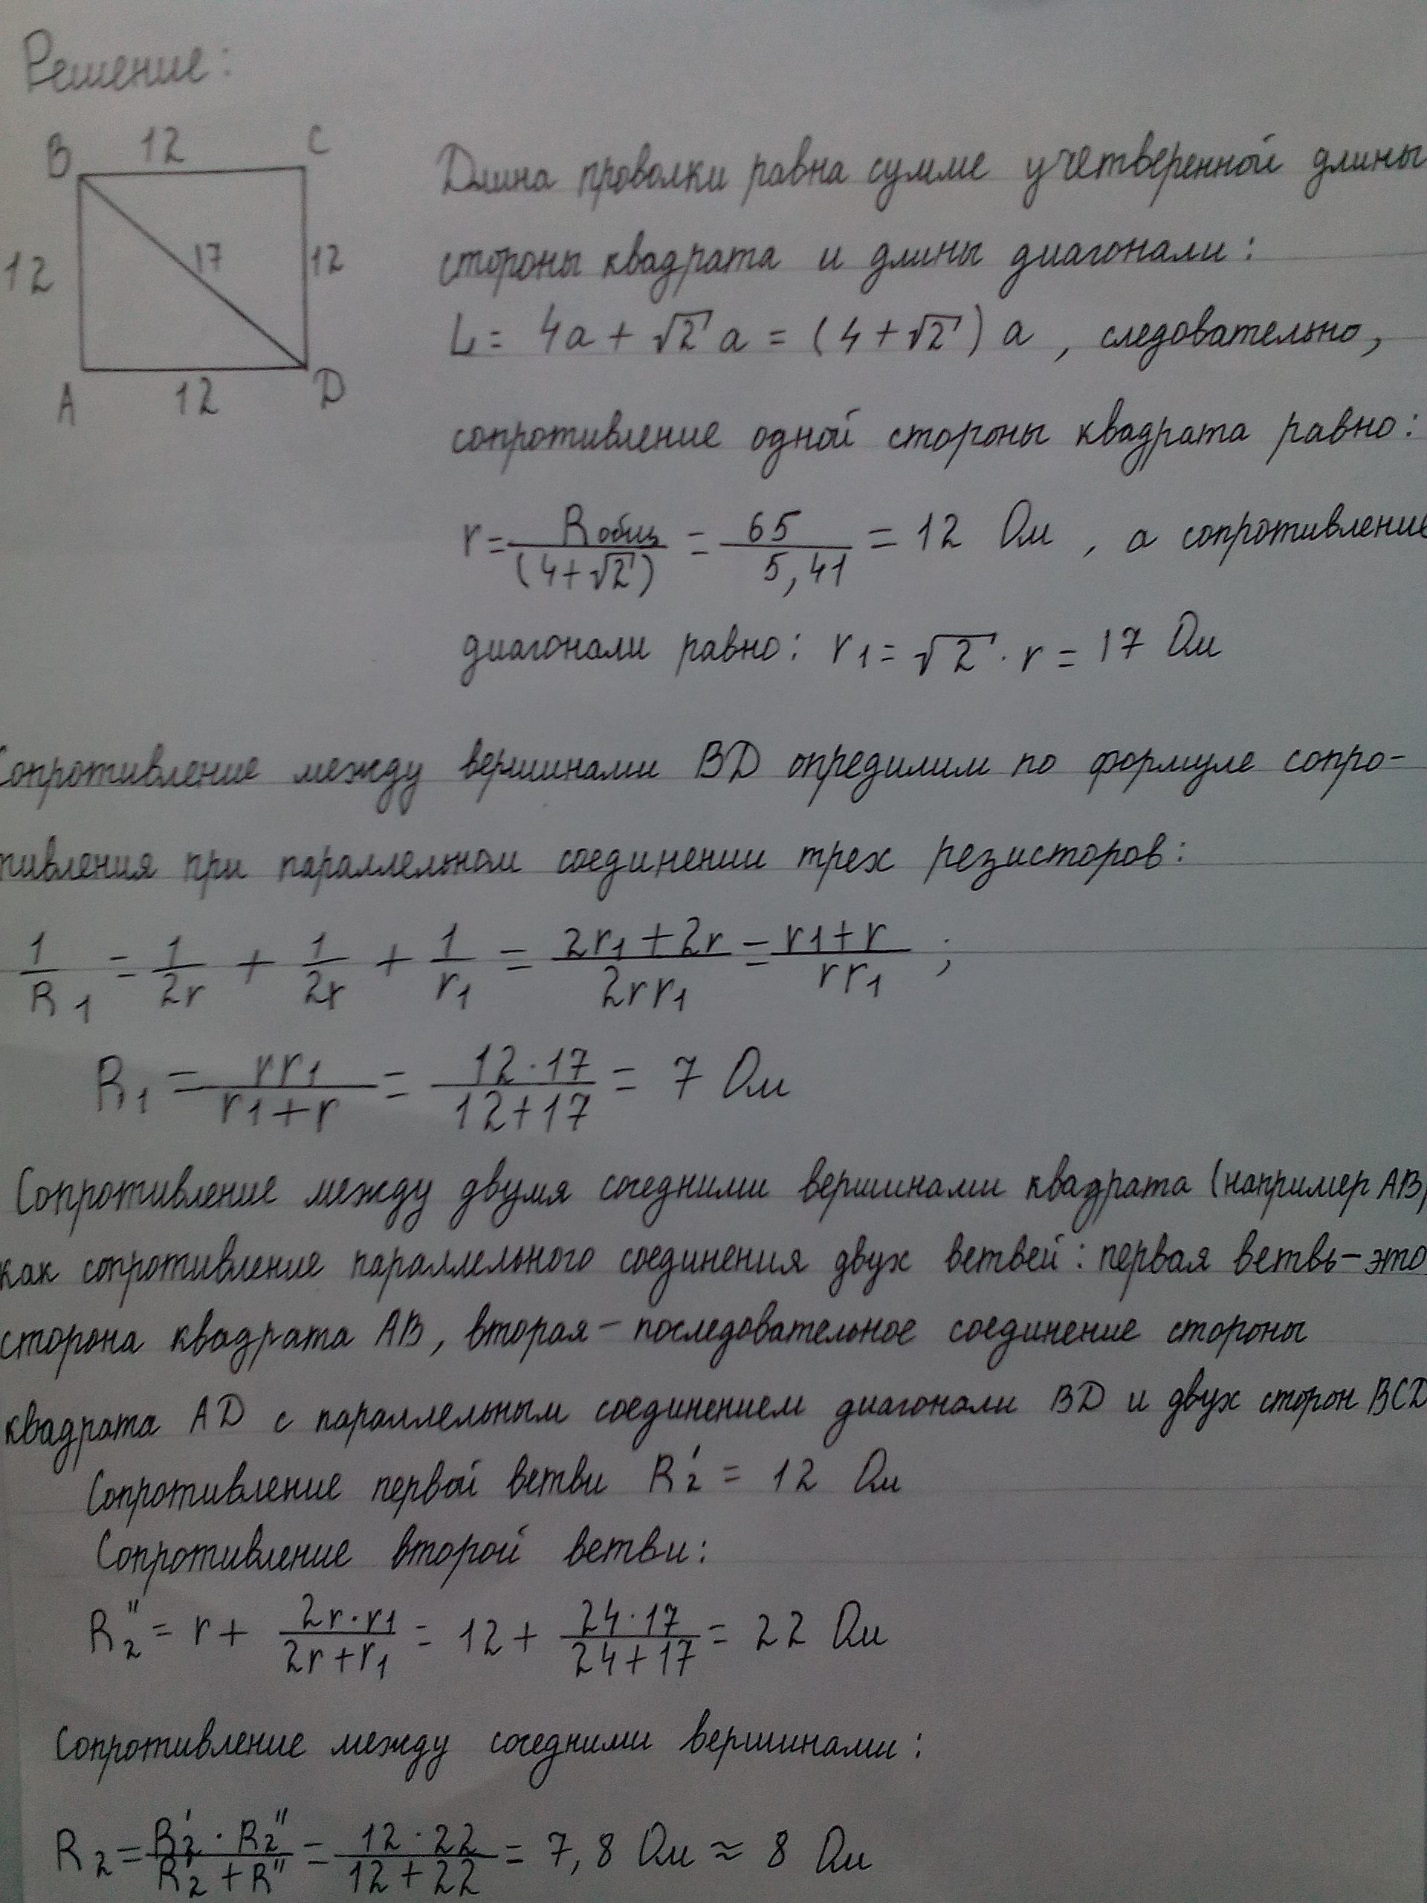 Решение:
B 12 C
12 17 12
A 12 D
Длина проволки равна сумме учетверенной длины
стороны квадрата и длины диагонали:
L = 4a + √2 a = (4 + √2) a , следовательно,
сопротивление одной стороны квадрата равно:
r = Rобщ / (4+√2) = 65 / 5,41 = 12 Ом , а сопротивление
диагонали равно: r1 = √2 · r = 17 Ом
Сопротивление между вершинами BD опредилим по формуле сопро-
тивления при параллельном соединении трех резисторов:
1/R1 = 1/2r + 1/2r + 1/r1 = (2r1 + 2r) / 2rr1 = (r1 + r) / rr1 ;
R1 = rr1 / (r1 + r) = 12·17 / (12+17) = 7 Ом
Сопротивление между двумя соседними вершинами квадрата (например AB)
как сопротивление параллельного соединения двух ветвей: первая ветвь - это
сторона квадрата AB, вторая - последовательное соединение стороны
квадрата AD с параллельным соединением диагонали BD и двух сторон BCD
Сопротивление первой ветви R2' = 12 Ом
Сопротивление второй ветви:
R2'' = r + 2r·r1 / (2r+r1) = 12 + 24·17 / (24+17) = 22 Ом
Сопротивление между соседними вершинами:
R2 = R2' · R2'' / (R2' + R'') = 12·22 / (12+22) = 7,8 Ом ≈ 8 Ом